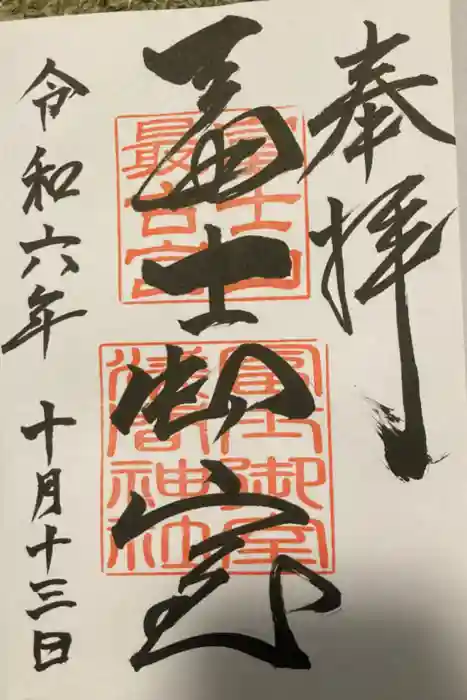 奉拝
冨士御室
富士山
最古宮
冨士御室
淺間神社
令和六年 十月十三日